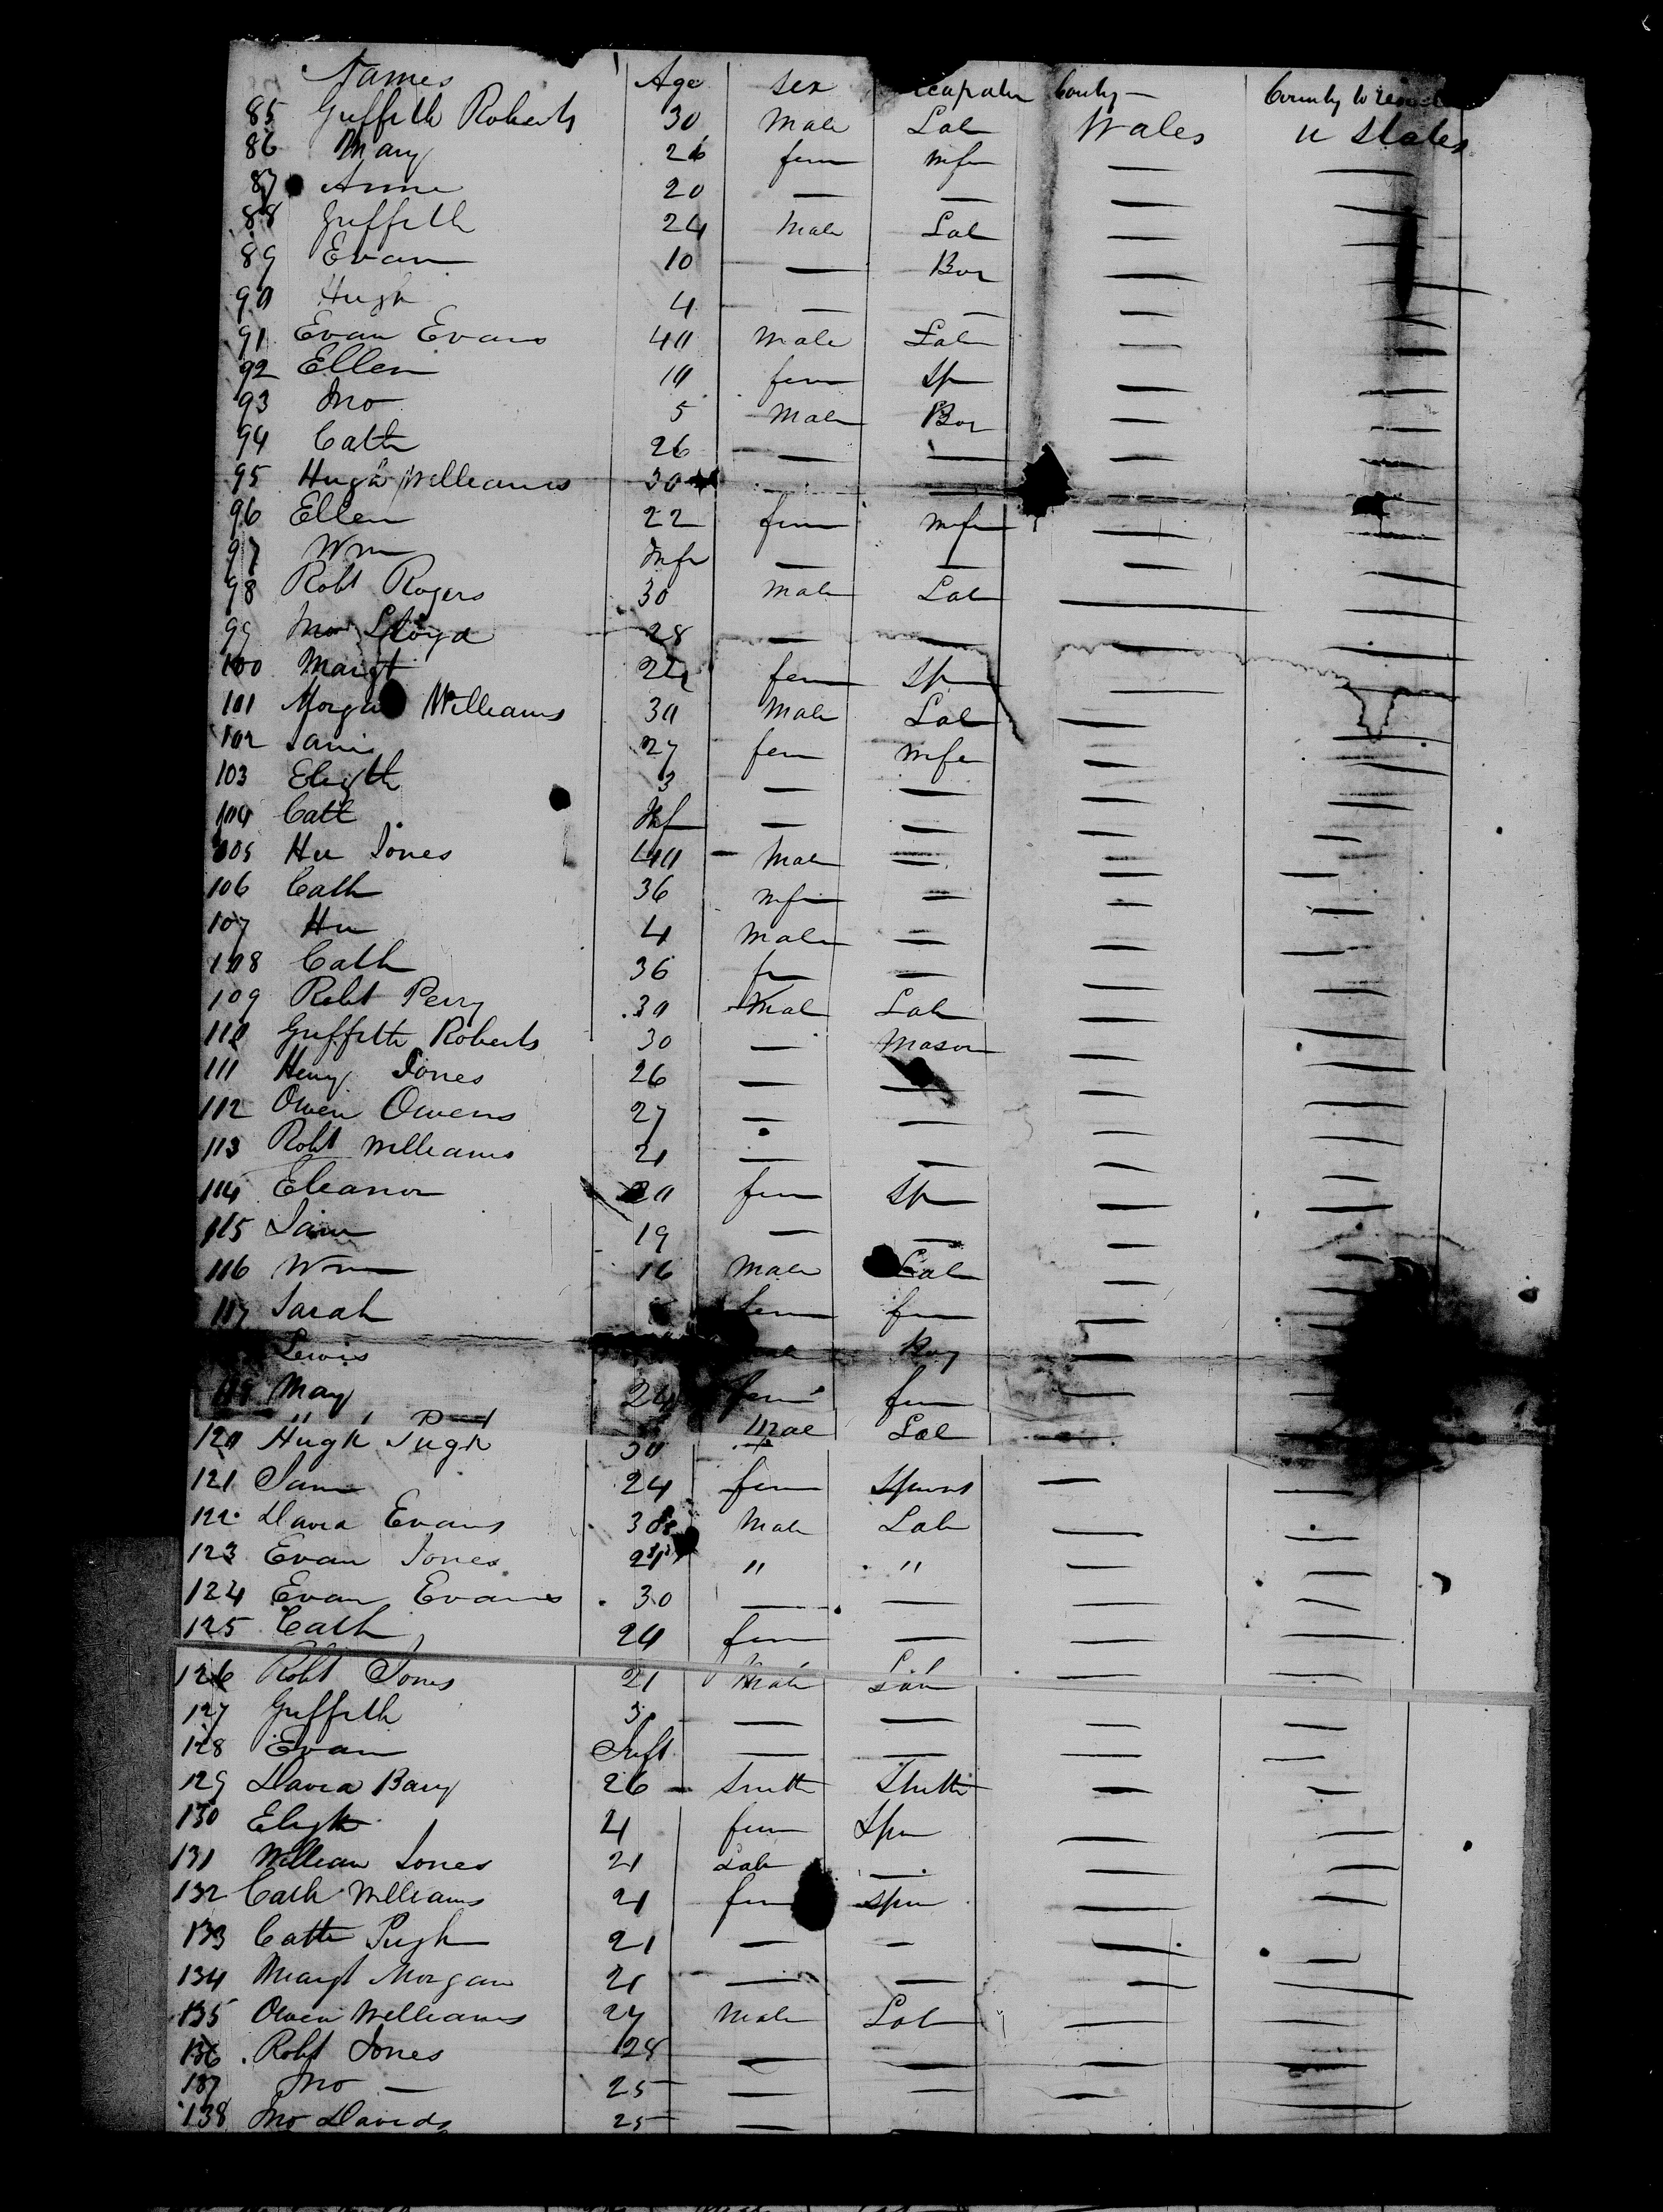 Names Age Sex County County to reside
85 Griffith Roberts 30 Male Lab Wales U States
86 Mary 26 fem wife — —
87 Anne 20 — — — —
88 Griffith 24 Male Lab — —
89 Evan 10 — Boy — —
90 Hugh 4 — — — —
91 Evan Evans 40 Male Lab — —
92 Ellen 10 fem Sp — —
93 Jno 5 Male Boy — —
94 Cath 26 — — — —
95 Hugh Williams 30 — —
96 Ellen 22 fem wife — —
97 Wm Inf — — — —
98 Robt Rogers 30 Male Lab — —
99 Jno Lloyd 28 — — — —
100 Margt fem Sp — —
101 Morgan Williams 30 Male Lab — —
102 Jane 27 fem wife — —
103 Elizth 3 — — — —
104 Cath Inf — — — —
105 Hu Jones 40 Male — — —
106 Cath 36 wife — — —
107 Hu 4 Male — — —
108 Cath 36 f — — —
109 Robt Perry 30 Male Lab — —
110 Griffith Roberts 30 — Mason — —
111 Henry Jones 26 — — — —
112 Owen Owens 27 — — — —
113 Robt Williams 21 — — — —
114 Eleanor 20 fem Sp — —
115 Jane 19 — — — —
116 Wm 16 Male Lab — —
117 Sarah fem fem — —
Lewis Boy — —
119 Mary 24 fem fem — —
120 Hugh Pugh 30 Male Lab — —
121 Jane 24 fem — —
122 David Evans Male Lab — —
123 Evan Jones 21 " " — —
124 Evan Evans 30 — — — —
125 Cath 24 fem — — —
126 Robt Jones 21 Male Lab — —
127 Griffith 3 — — — —
128 Evan Inft — — — —
129 David 26 Smith Smith — —
130 Elizth 21 fem Spin — —
131 William Jones 21 Lab — — —
132 Cath Williams 21 fem spin — —
133 Cath Pugh 21 — — — —
134 Margt Morgan 21 — — — —
135 Owen Williams 27 Male Lab — —
136 Robt Jones 28 — — — —
137 Jno — 25 — — — —
138 Jno Davids 25 — —